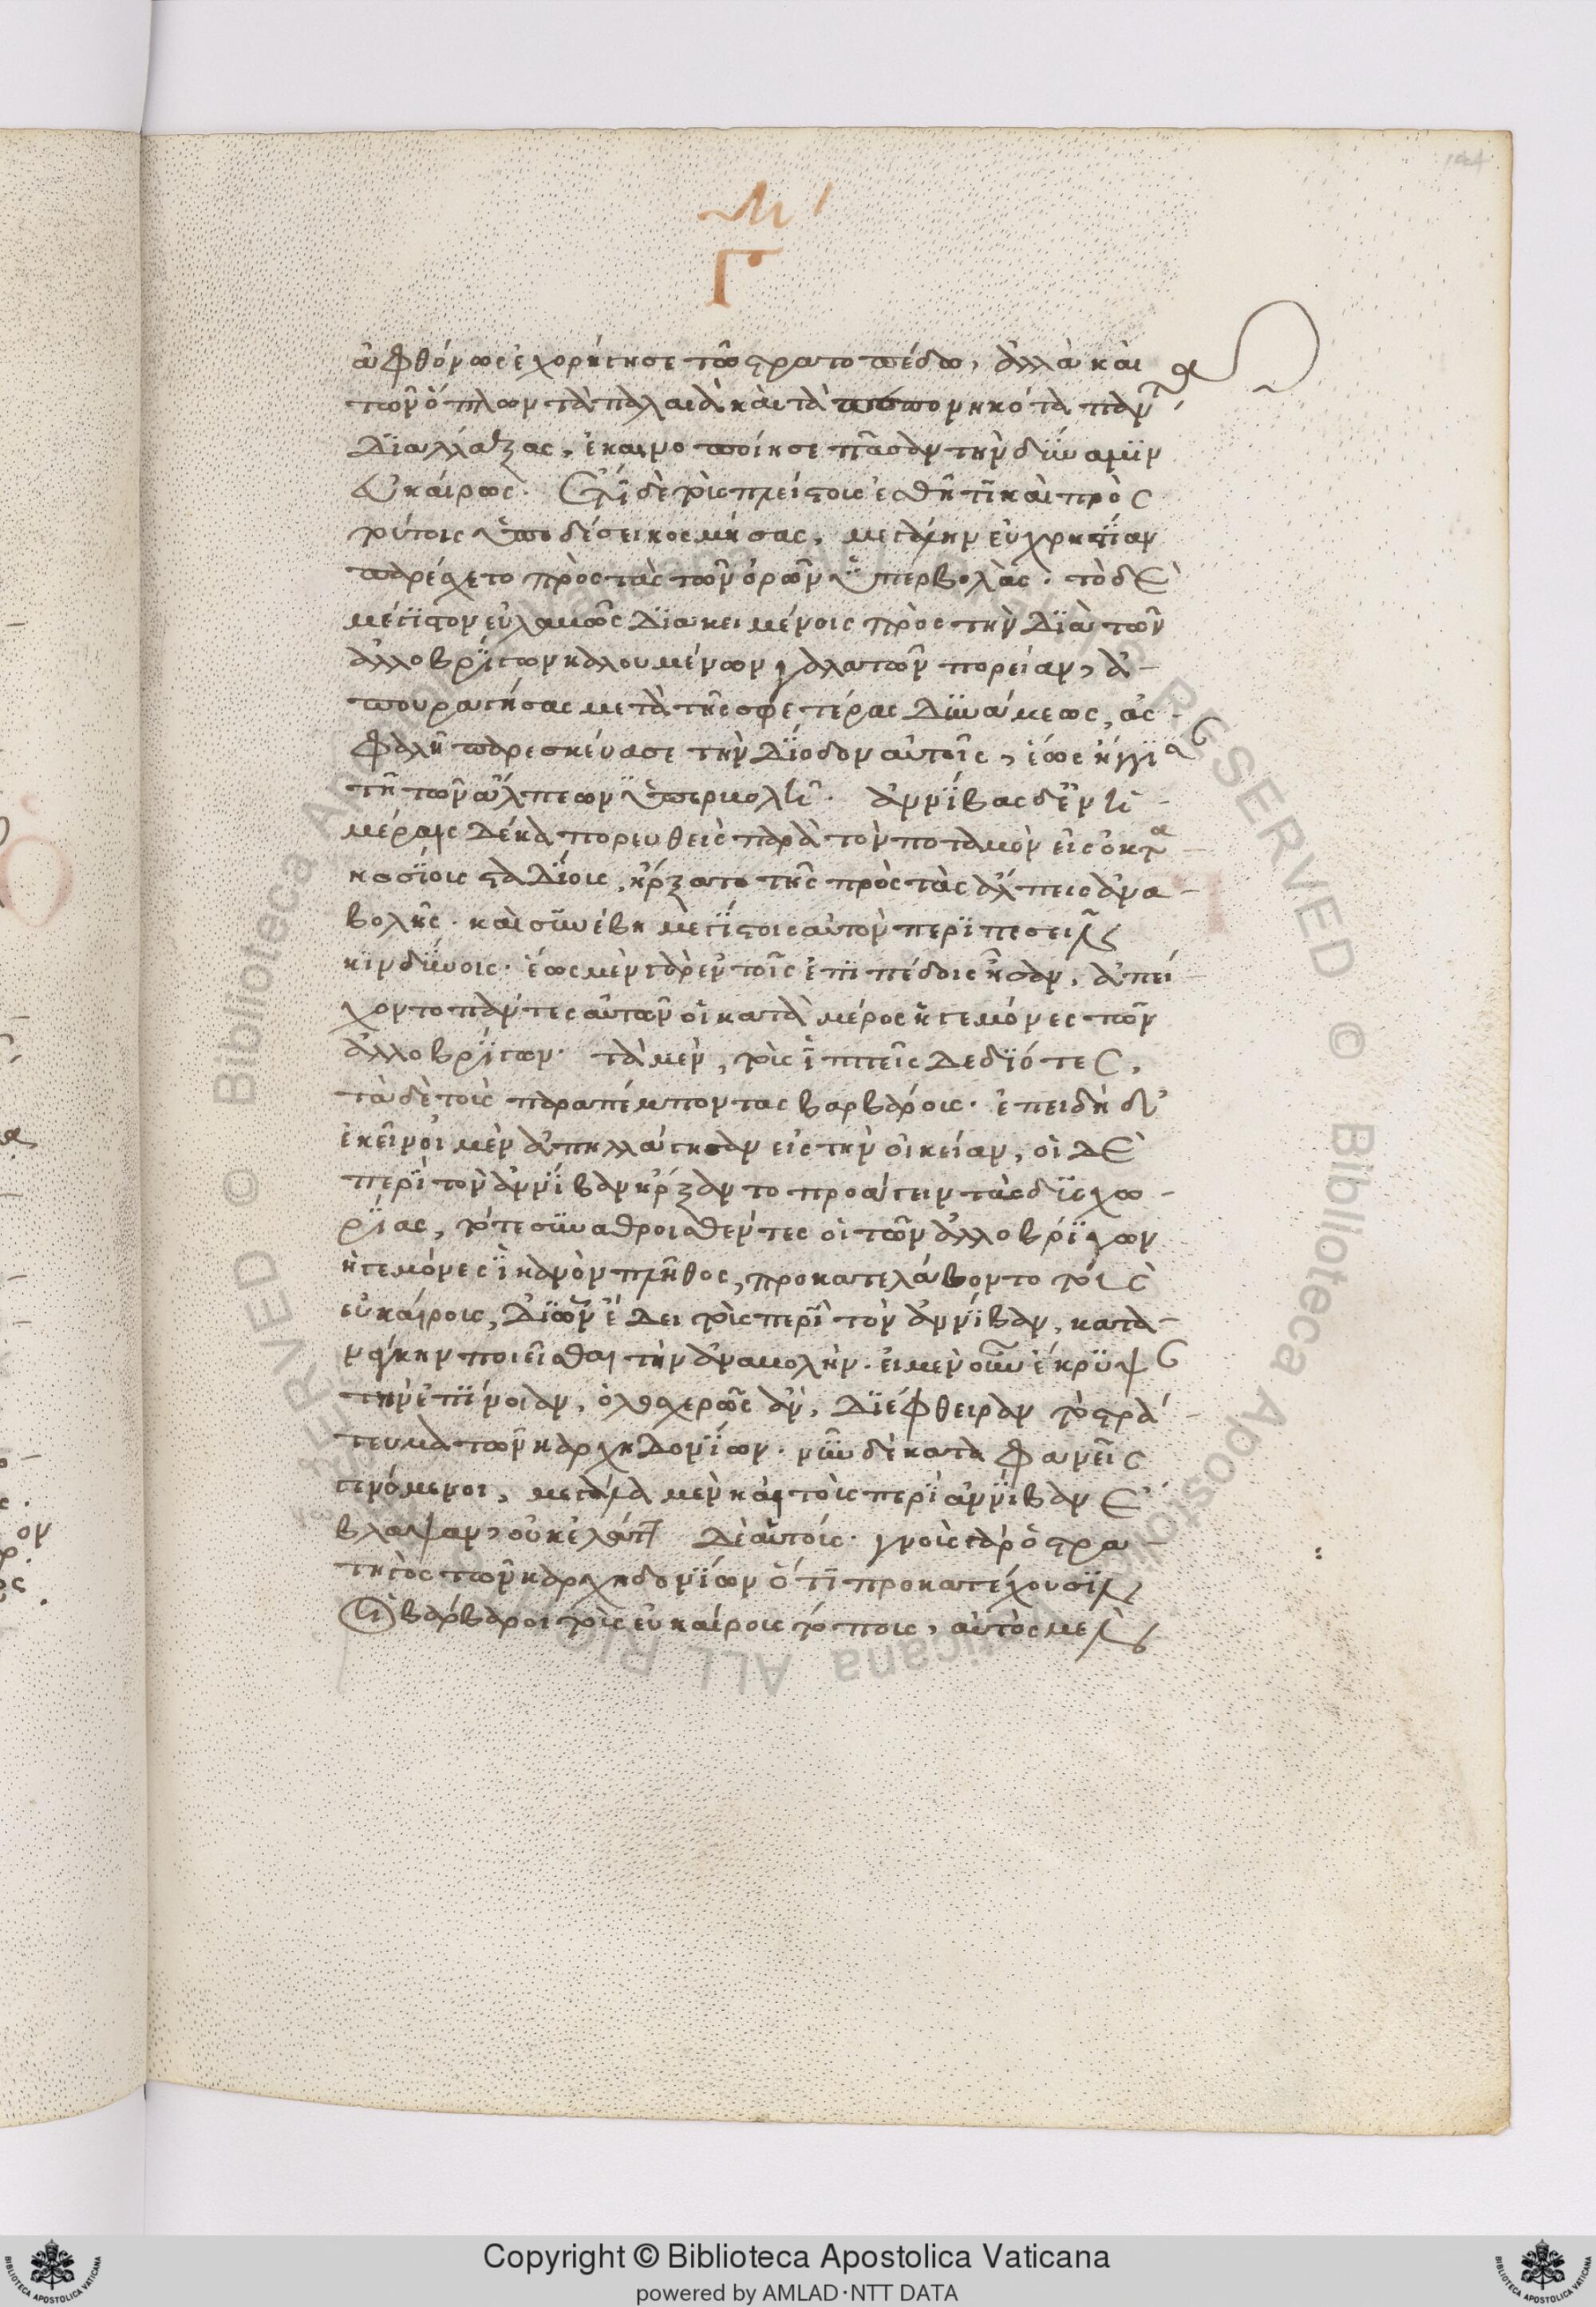 Γ
ἀφθόνως ἐχορήγησε τῶ στρατοπέδω, ἀλλὰ καὶ
τῶν ὅπλων τὰ παλαιὰ καὶ τὰ πεπονηκότα πάντα
διαλλάξας, ἐκαινοποίησε πᾶσαν τὴν δύναμϊν
εὐκαίρως. ἔτι δὲ τοὺς πλείστους ἐσθῆτι καὶ πρὸς
τούτοις ὑποδέσει κοσμήσας, μεγάλην εὐχρηστίαν
παρέσχετο πρὸς τὰς τῶν ὀρῶν ὑπερβολάς. τὸ δὲ
μέγιστον εὐλαβῶς διακειμένοις πρὸς τὴν διὰ τῶν
ἀλλοβρίγων καλουμένων γαλατῶν πορείαν, ἀ-
πουραγήσας μετὰ τῆς σφετέρας δυνάμεως, ἀσ-
φαλῆ παρεσκεύασε τὴν δίοδον αὐτοῖς, ἕως ἤγγισαν
τῆ τῶν ἄλπεων ὑπερβολῆ. ἀννίβας δ' ἐν ἡ-
μέραις δέκα πορευθεὶς παρὰ τὸν ποταμὸν εἰς ὀκτα-
κοσίους σταδίους, ἤρξατο τῆς πρὸς τὰς ἄλπεις ἀνα-
βολῆς. καὶ συνέβη μεγίστοις αὐτὸν περιπεσεῖν
κινδύνοις. ἕως μὲν γὰρ ἐν τοῖς ἐπιπέδοις ἦσαν, ἀπεί-
χοντο πάντες αὐτῶν οἱ κατὰ μέρος ἡγεμόνες τῶν
ἀλλοβρίγων. τὰ μὲν, τοὺς ἱππεῖς δεδιότες,
τὰ δὲ τοὺς παραπέμποντας βαρβάρους. ἐπειδὴ δ'
ἐκεῖνοι μὲν ἀπηλλάγησαν εἰς τὴν οἰκείαν, οἱ δὲ
περὶ τὸν ἀννίβαν ἤρξαντο προάγειν τὰς δυσχω-
ρίας, τότε συναθροισθέντες οἱ τῶν ἀλλοβρίγων
ἡγεμόνες ἱκανὸν πλῆθος, προκατελάβοντο τοὺς
εὐκαίρους, δι' ὧν ἔδει τοὺς περὶ τὸν ἀννίβαν, κατ' ἀ-
νάγκην ποιεῖσθαι τὴν ἀναβολήν. εἰ μὲν οὖν ἔκρυψαν
τὴν ἐπίνοιαν, ὁλοσχερῶς ἂν, διέφθειραν τὸ στρά-
τευμα τῶν καρχηδονίων. νῦν δὲ καταφανεῖς
γενόμενοι, μεγάλα μὲν καὶ τοὺς περὶ ἀννίβαν ἔ-
βλαψαν, οὐκ ἐλάττω δὲ αὑτούς. γνοὺς γὰρ ὁ στρα-
τηγὸς τῶν καρχηδονίων ὅτι προκατέχουσϊν
οἱ βάρβαροι τοὺς εὐκαίρους τόπους, αὐτὸς μὲν